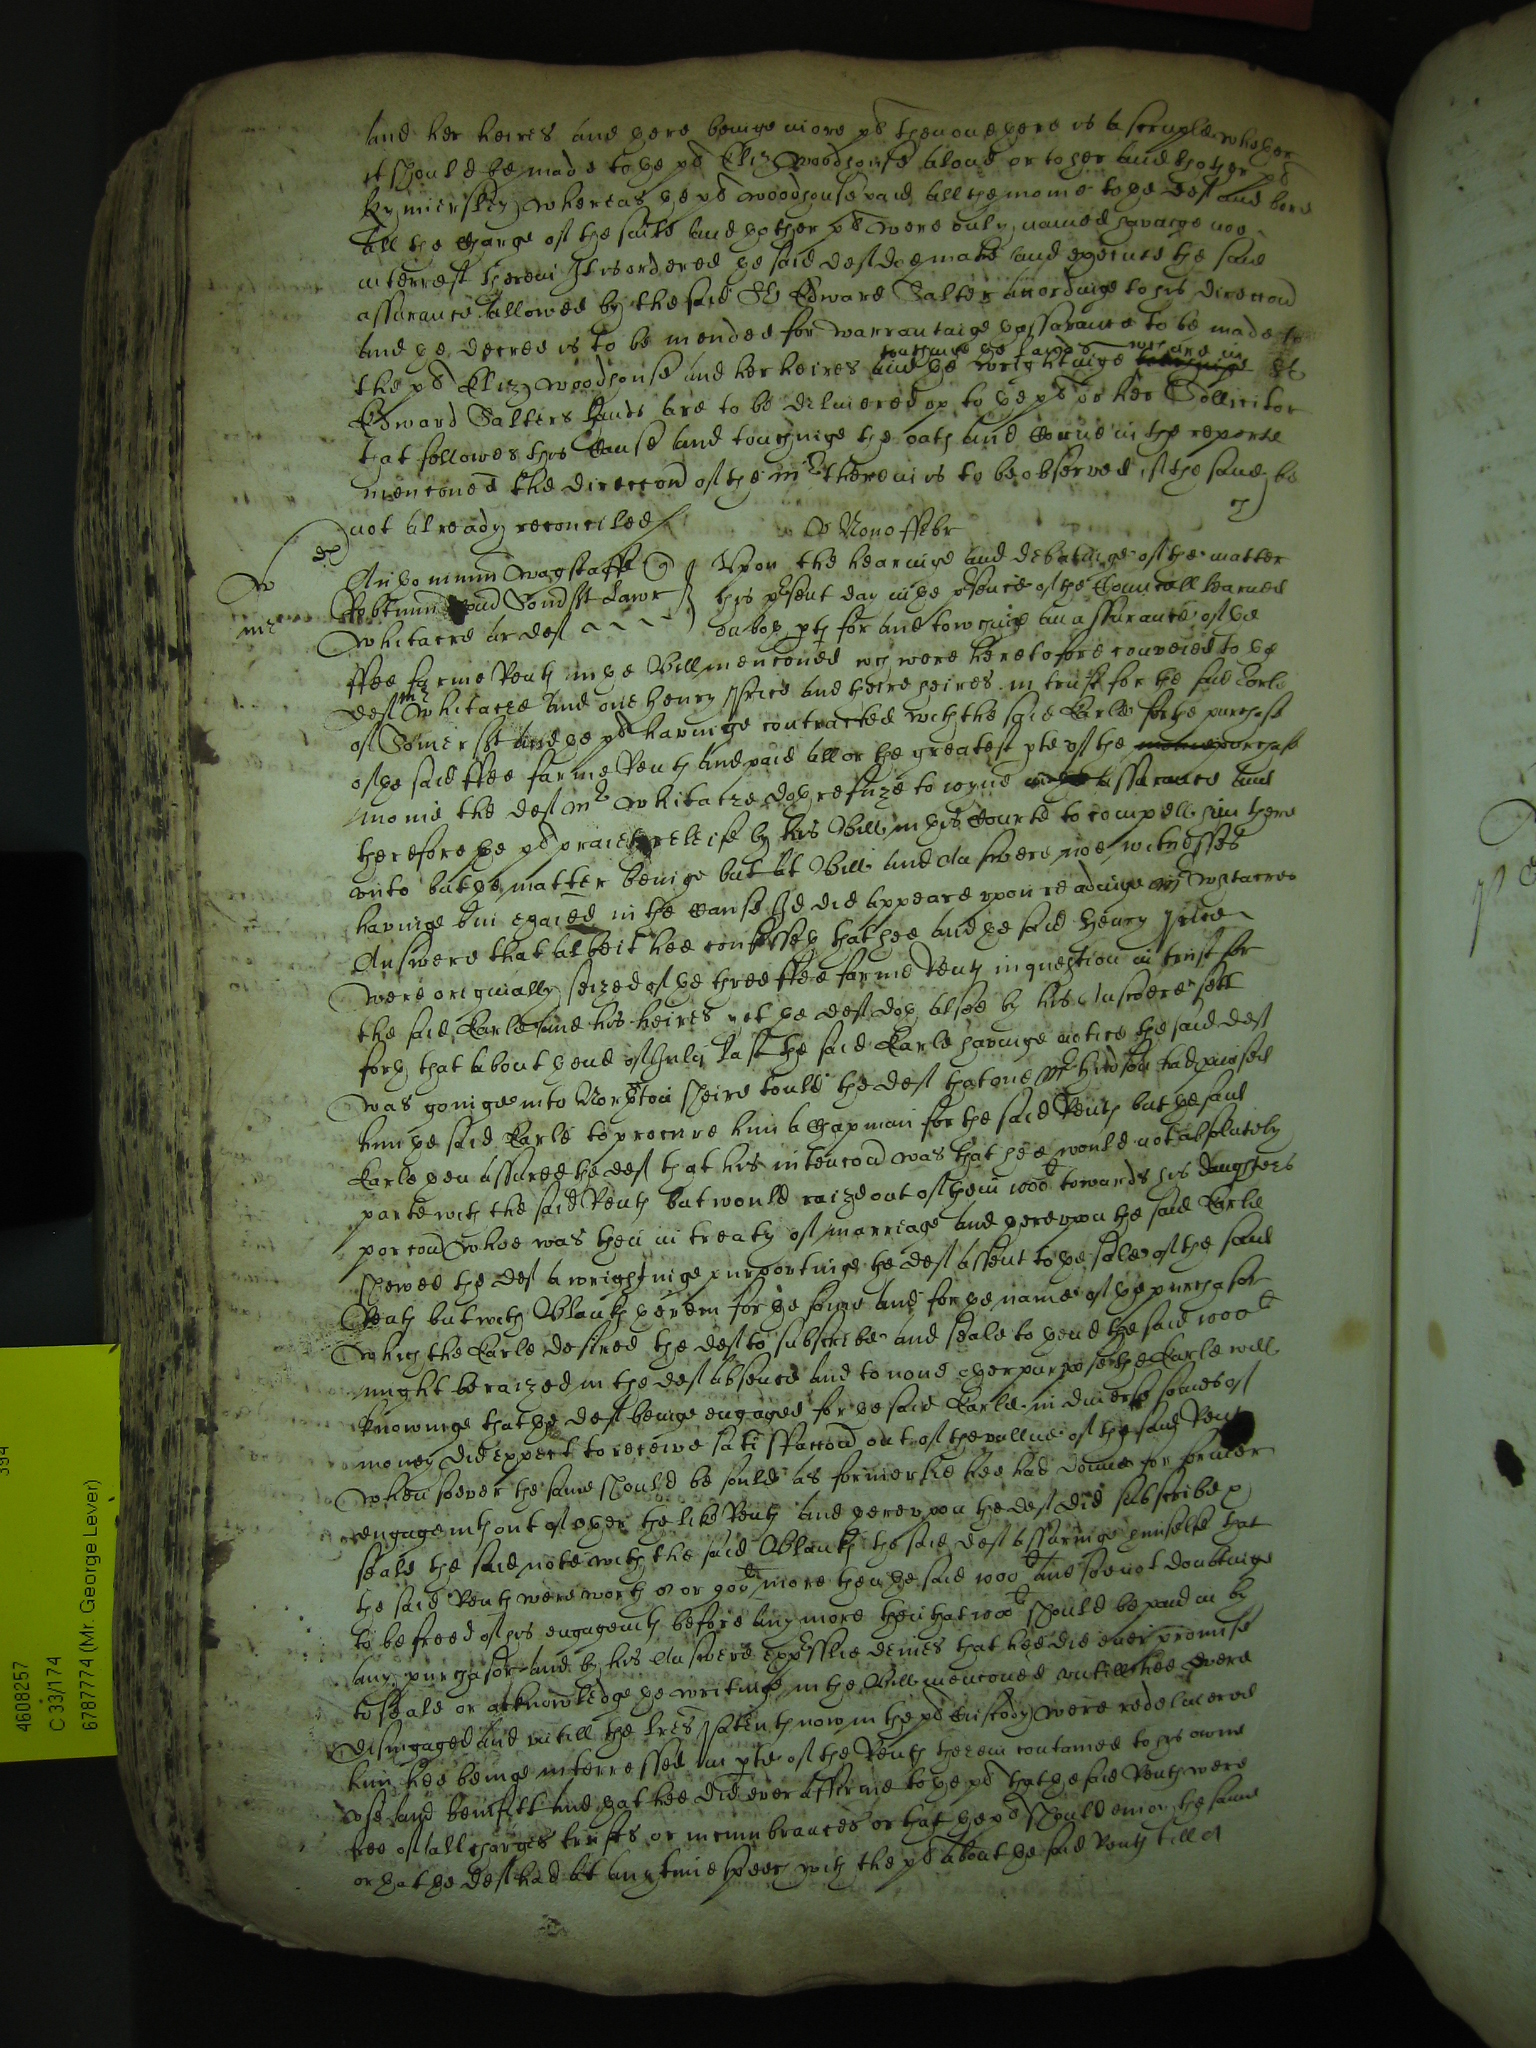 and her heires and there beinge more pl then one there is a scruple whether
it should be made to the pl Eliz Woodhouse alone or to her and thother pl
Kymiersley whereas the pl Woodhouse paid all the monie to the deft and bore
all the charge of the suite and thother pl were only named havinge noe
interrest therein It is ordered the said deft doe make and execute the same
assurance allowed by the said Sr Edward Salter accordinge to his direccon
and the decree is to be mended for warrantinge thassurance to be made to
the pl Eliz Woodhouse and her heires and the wrightinge
touchinge the lands wch are in Sr
Edward Salters hands are to be delivered vp to the pl or her Sollicitor
that followes this cause and touchinge the oath and in the reporte
menconed the direccon of the mr therein is to be observed if the same be
not already reconciled
Nono ffebr
Antonium Wagstaffe Vpon the hearinge and debatinge of the matter
Robtum Somsst Lawr this psent day in the psence of the Councell learned
Whitacre ar deft on both pts for and towchinge an assurance of the
ffee farme Rents in the Bill menconed wch were heretofore conveied to the
deft mr Whitacre and one Henry Price and theire heires in trust for the said Earle
of Somersst and the pl havinge contracted with the said Earle for the purchase
of the said ffee farme Rents and paid all or the greatest pte of the purchase
monie the deft mr Whitacre doth refuze to ioyne in assurance and
therefore the pl praieth releife by his Bill in this Courte to compell him there
vnto but the matter beinge but at Bill and Answere noe witnesses
havinge bin exaied in the cause It did appeare vpon readinge mr Whitacres
Answere that albeit hee confesseth that hee and the said Henry Price
were originally seized of the three ffee farme Rents in question in trust for
the said Earle and his heires yet the deft doth alsoe by his Answere sett
forth that about thend of July last the said Earle havinge notice the said deft
was goinge into Northton sheire tould the deft that one mr had
him the said Earle to procure him a Chapman for the said Rents but the said
Earle then assured the deft that his intencon was that hee would not absolutely
parte with the said Rents but would raize out of them 1000l towards his daughters
porcon whoe was then in treaty of marriage and therevpon the said Earle
shewed the deft a wrightinge purportinge the deft assent to the sale of the said
Rents but with Blanks therein for the some and for the name of the purchasor
which the Earle desired the deft to subscribe and seale to thend the said 1000l
might be raized in the deft absence and to none other purpose the Earle well
knowinge that the deft beinge engaged for the said Earle in diverse somes of
money did expect to receive satisffaccon out of the vallue of the said Rents
whensoever the same should be sould as formerlie hee had donne for former
engagemts out of other the like Rents and therevpon the deft did subscribe &
seale the said note with the said Blanks the said deft assuringe himselfe that
the said Rents were worth 8 or 900l more then the said 1000l and soe not doubtinge
to be freed of his engagemts before any more then that 1000l should be paid in by
any purchasor and by his Answere expresslie denies that hee did ever promise
to seale or acknowledge the writinge in the Bill menconed vntill hee were
disingaged and vntill the lres Patents now in the pl custody were redelivered
him hee beinge interressed in pte of the Rents therein contained to his owne
vse and benifitt and that hee did ever affirme to the pl that the said Rents were
free of all charges trusts or incumbrances or that the pl should enioy the same
or that the deft had at any time speech with the pl about the said Rents till
4608257
C 33/174
6787774 (Mr. George Lever)